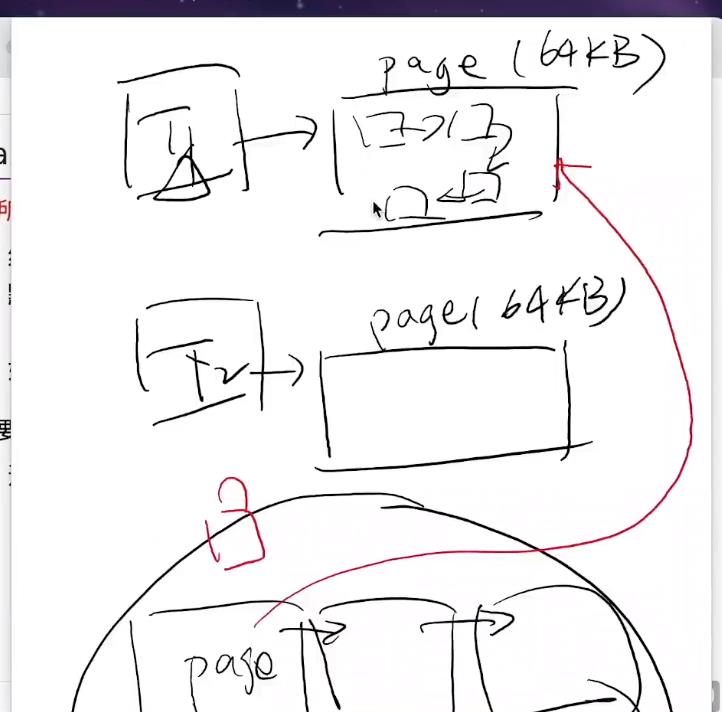 page (64KB)
T1
page (64KB)
T2
page
a
所
要